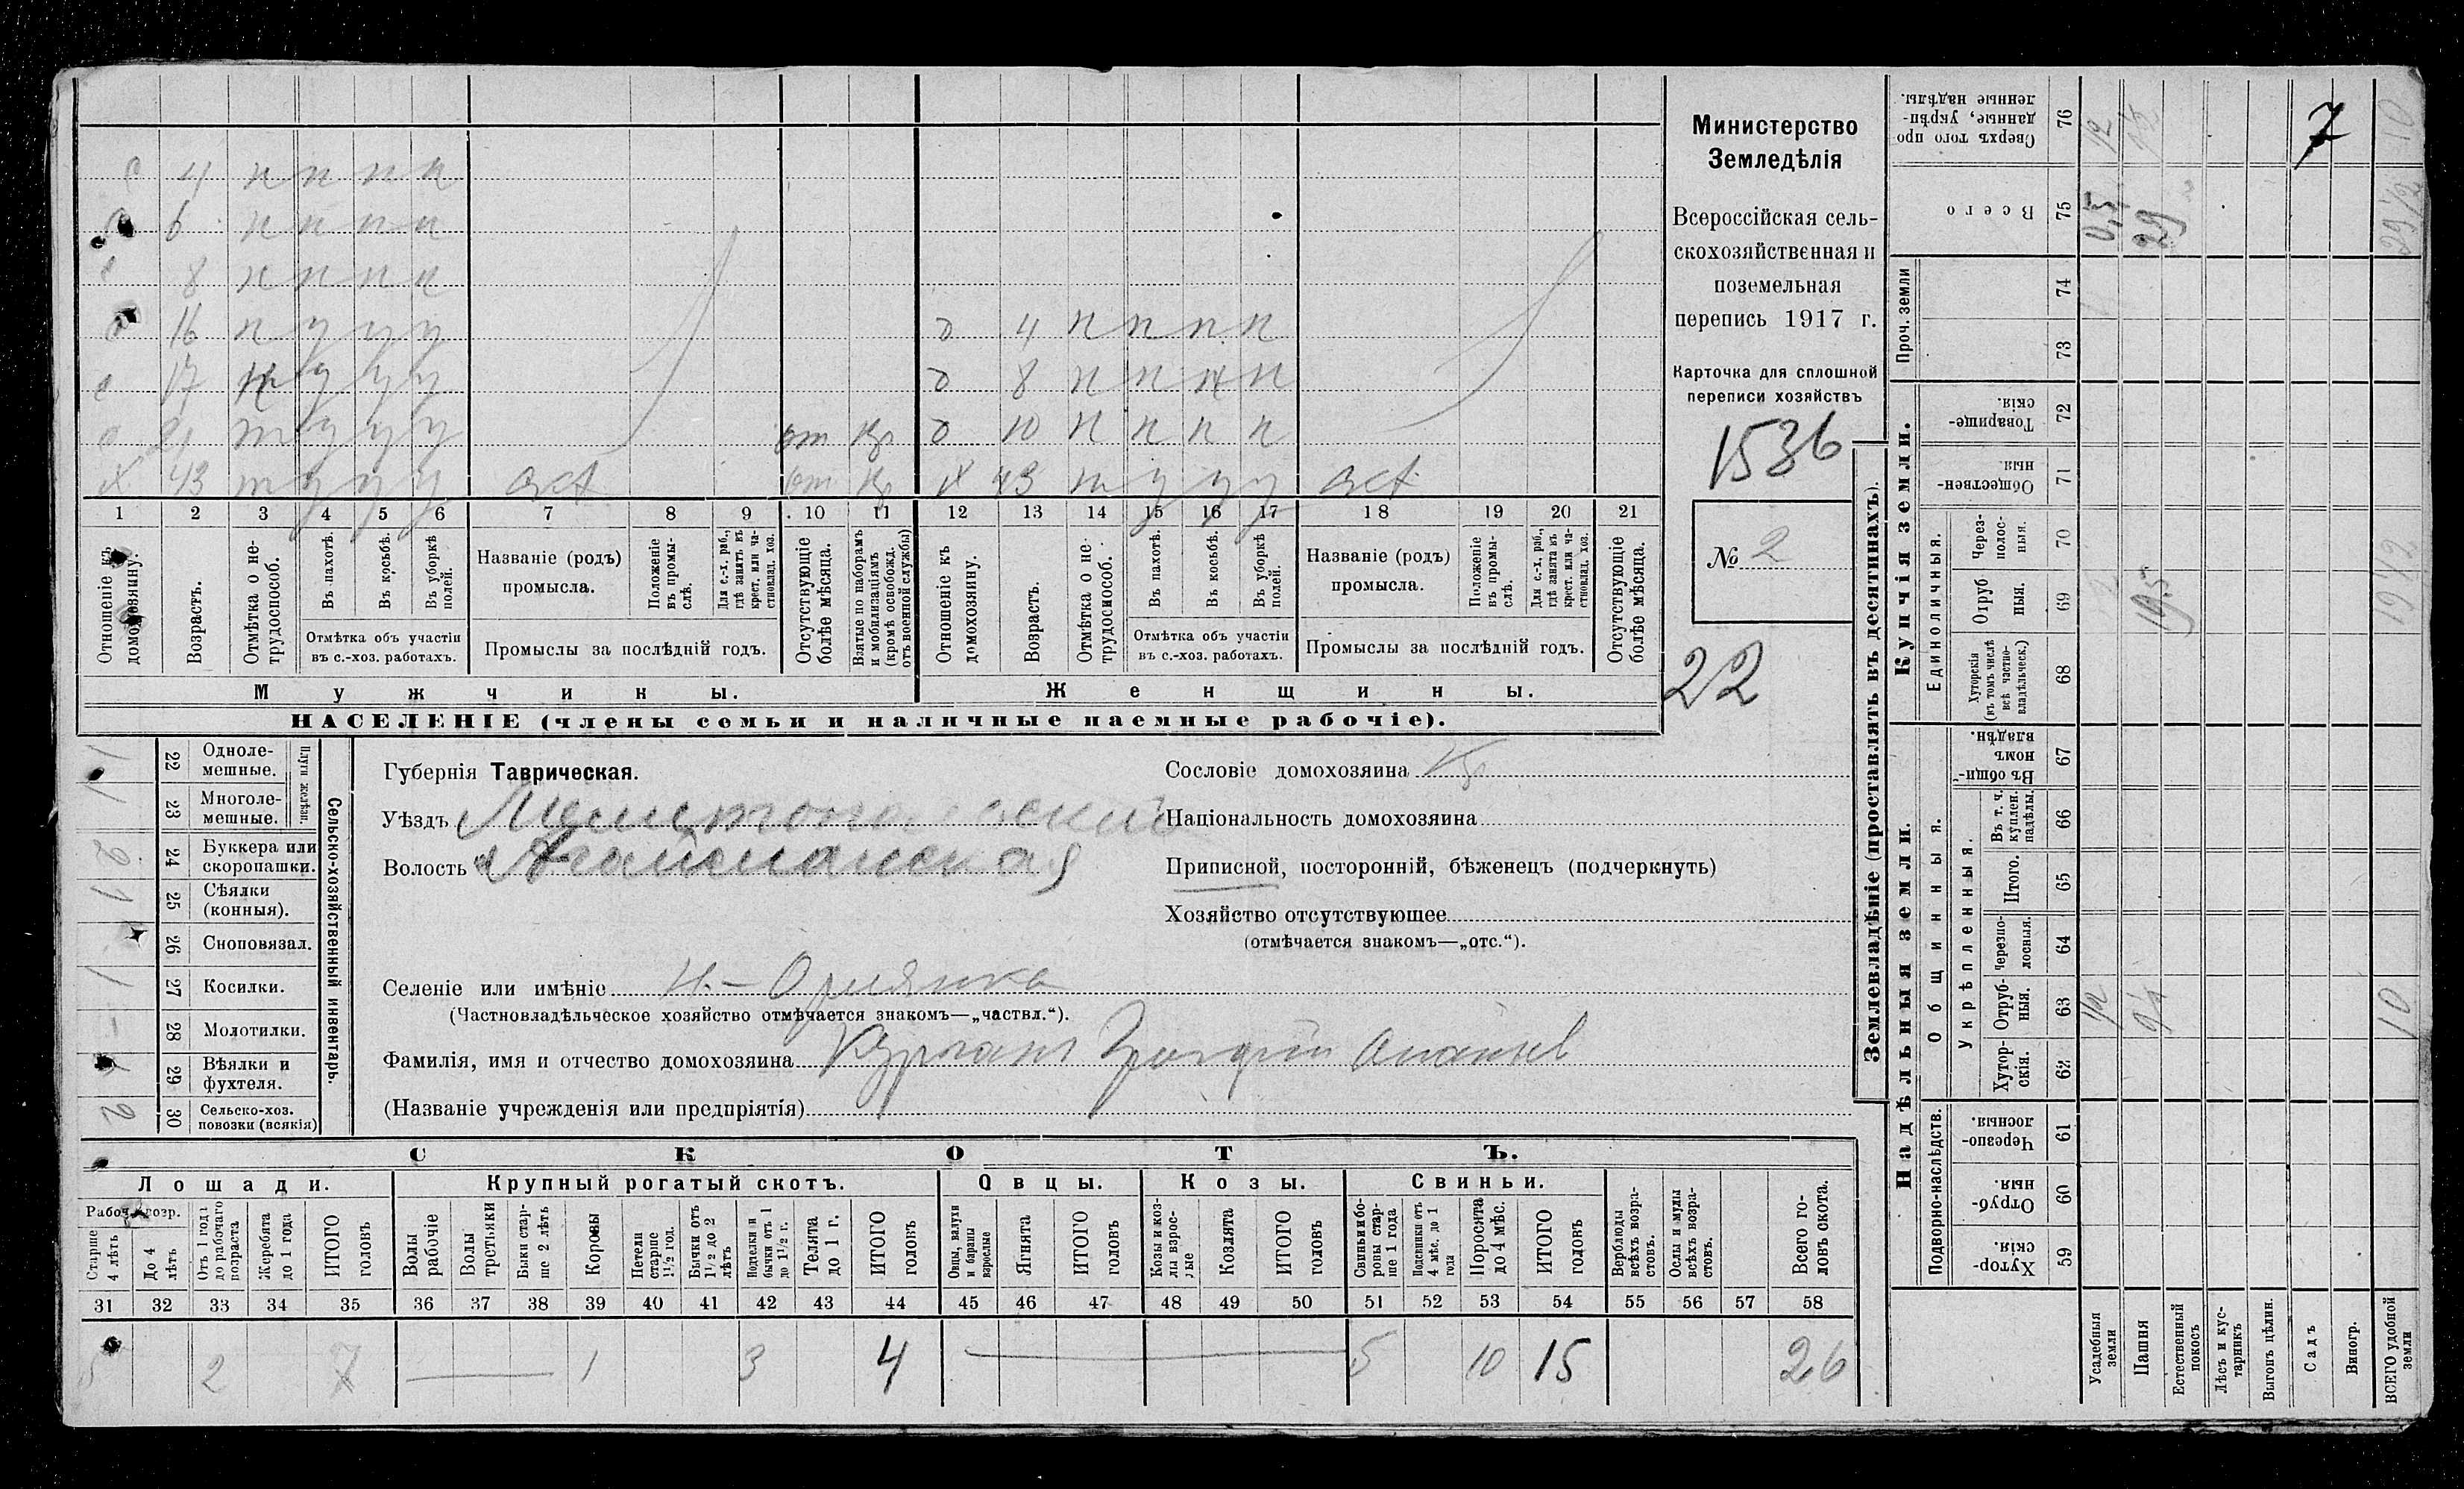 с 4 н н н н
с 6 н н н н
с 8 н н н н
с 16 н у у у
д 4 н н н н
с 17 н у у у
д 8 н н н н
с 21 т у у у от
д 10 н н н н
х 43 т у у у от
х 43 у у у
1 2 3 4 5 6 7 8 9 10 11 12 13 14 15 16 17 18 19 20 21
Отношеніе къ домохозяину.
Возрастъ.
Отмѣтка о нетрудоспособ.
Въ пахотѣ.
Въ косьбѣ.
Въ уборкѣ полей.
Отмѣтка объ участіи
въ с.-хоз. работахъ.
Названіе (родъ)
промысла.
Положеніе въ промыслѣ.
Для с.-х. раб., гдѣ занятъ въ крест. или частновлад. хоз.
Промыслы за послѣдній годъ.
Отсутствующіе болѣе мѣсяца.
Взятые по наборамъ и мобилизаціямъ (кромѣ освобожд. отъ военной службы)
Отношеніе къ домохозяину.
Возрастъ.
Отмѣтка о нетрудоспособ.
Въ пахотѣ.
Въ косьбѣ.
Въ уборкѣ полей.
Отмѣтка объ участіи
въ с.-хоз. работахъ.
Названіе (родъ)
промысла.
Положеніе въ промыслѣ.
Для с.-х. раб., гдѣ занята въ крест. или частновлад. хоз.
Промыслы за послѣдній годъ.
Отсутствующіе болѣе мѣсяца.
Мужчины.
Женщины.
НАСЕЛЕНІЕ (члены семьи и наличные наемные рабочіе).
Министерство
Земледѣлія
Всероссійская сель-
скохозяйственная и
поземельная
перепись 1917 г.
Карточка для сплошной
переписи хозяйствъ
1536
№ 2
22
Сельско-хозяйственный инвентарь.
Плуги желѣзн.
22 Одноле-
мешные.
1
23 Многоле-
мешные.
1
24 Буккера или
скоропашки.
2
25 Сѣялки
(конныя).
1
26 Сноповязал.
-
27 Косилки.
1
28 Молотилки.
-
29 Вѣялки и
фухтеля.
1
30 Сельско-хоз.
повозки (всякія)
2
Губернія Таврическая.
Уѣздъ Мелитопольский
Волость Агайманская
Селеніе или имѣніе Н.-Орлянка
(Частновладѣльческое хозяйство отмѣчается знакомъ—„частвл.“).
Фамилія, имя и отчество домохозяина
(Названіе учрежденія или предпріятія)
Сословіе домохозяина Кр
Національность домохозяина
Приписной, посторонній, бѣженецъ (подчеркнуть)
Хозяйство отсутствующее
(отмѣчается знакомъ—„отс.“).
СКОТЪ.
Лошади.
Крупный рогатый скотъ.
Овцы.
Козы.
Свиньи.
Рабоч. возр.
Старше 4 лѣтъ
До 4 лѣтъ
Отъ 1 года до рабочаго возраста
Жеребята до 1 года
ИТОГО головъ
Волы рабочіе
Волы третьяки
Быки старше 2 лѣтъ
Коровы
Нетели старше 1½ год.
Бычки отъ 1½ до 2 лѣтъ
Подтелки и бычки отъ 1 до 1½ г.
Телята до 1 г.
ИТОГО головъ
Овцы, валухи и бараны взрослые
Ягнята
ИТОГО головъ
Козы и козлы взрослые
Козлята
ИТОГО головъ
Свиньи и боровы старше 1 года
Подсвинки отъ 4 мѣс. до 1 года
Поросята до 4 мѣс.
ИТОГО головъ
Верблюды всѣхъ возрастовъ.
Ослы и мулы всѣхъ возрастовъ.
Всего головъ скота.
31 32 33 34 35 36 37 38 39 40 41 42 43 44 45 46 47 48 49 50 51 52 53 54 55 56 57 58
5 2 7 1 3 4 5 10 15 26
Землевладѣніе (проставлять въ десятинахъ).
Надѣльныя земли.
Купчія земли.
Проч. земли
Подворно-наслѣдств.
Общинныя.
Укрѣпленныя.
Единоличныя.
76 Сверхъ того проданные, укрѣпленные надѣлы.
1/2 7 10
75 Всего
0,5 29 29 1/2
74
73
72 Товарищескія.
71 Общественныя.
70 Черезполосныя.
69 Отрубныя.
19.5 19 1/2
68 Хуторскія (въ томъ числѣ всѣ частновладѣльческ.)
67 Въ общинномъ владѣн.
66 Въ т. ч. куплен. надѣлы.
65 Итого.
64 Черезполосныя.
63 Отрубныя.
1/2 9 1/2 10
62 Хуторскія.
61 Черезполосныя.
60 Отрубныя.
59 Хуторскія.
Усадебныя земли
Пашня
Естественный покосъ
Лѣсъ и кустарникъ
Выгонъ цѣлин.
Садъ
Виногр.
ВСЕГО удобной земли